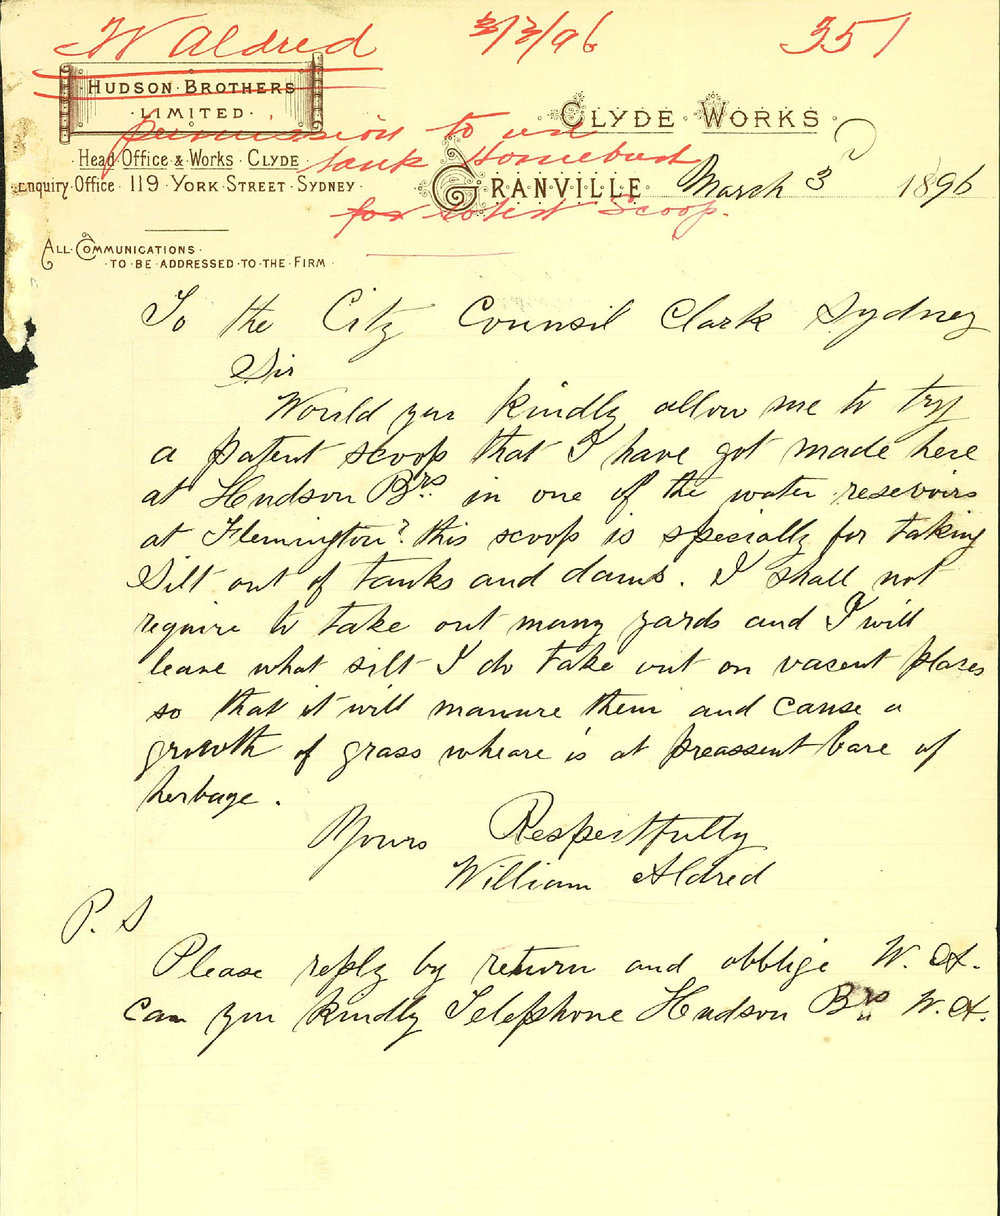 W Aldred 3/3/96 351
HUDSON·BROTHERS
·LIMITED·
permission to use
tank Homebush
for patent Scoop.
·CLYDE·WORKS·
·Head·Office & Works·CLYDE·
Enquiry·Office·119·YORK·STREET·SYDNEY·
GRANVILLE March 3rd 1896
ALL·COMMUNICATIONS·
·TO·BE·ADDRESSED·TO·THE·FIRM·
To the City Counsil Clark Sydney
Sir
Would you kindly allow me to try
a patent scoop that I have got made here
at Hudson Brs. in one of the water resevoirs
at Flemington? this scoop is specially for taking
Silt out of tanks and dams. I shall not
require to take out many yards and I will
leave what silt I do take out on vasent plases
so that it will manure them and cause a
growth of grass wheare is at preassent bare of
herbage.
Yours Respectfully
William Aldred
P. S
Please reply by return and obblige W. A.
Can you kindly Telephone Hudson Brs W. A.